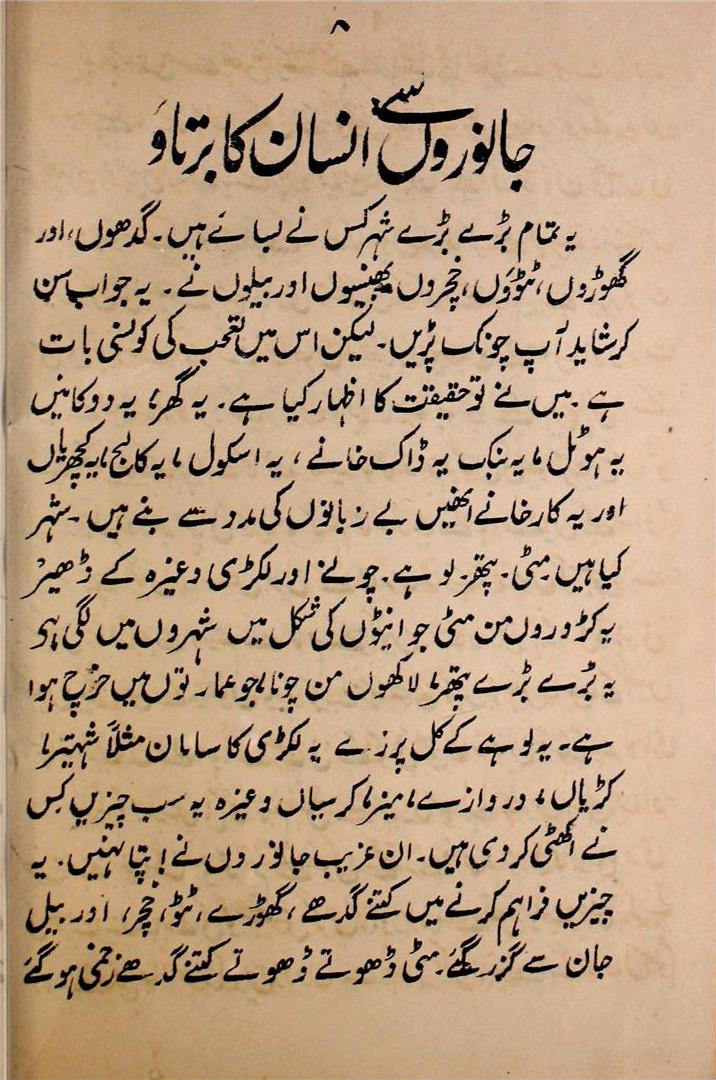 ۸
جانوروں سے انسان کا برتاؤ
یہ تمام بڑے بڑے شہر کس نے بسائے ہیں۔ گدھوں، اور
گھوڑوں، ٹٹوؤں، خچروں بھینسوں اور بیلوں نے۔ یہ جواب سن
کر شاید آپ چونک پڑیں۔ لیکن اس میں تعجب کی کونسی بات
ہے۔ میں نے تو حقیقت کا اظہار کیا ہے۔ یہ گھر، یہ دوکانیں
یہ ہوٹل، یہ بنک یہ ڈاک خانے، یہ اسکول، یہ کالج، یہ کچہریاں
اور یہ کارخانے انھیں بے زبانوں کی مدد سے بنے ہیں۔ شہر
کیا ہیں مٹی۔ پتھر۔ لوہے۔ چونے اور لکڑی وغیرہ کے ڈھیر
یہ کڑوروں من مٹی جو اینٹوں کی شکل میں شہروں میں لگی ہی
یہ بڑے بڑے پتھر، لاکھوں من چونا، جو عمارتوں میں خرچ ہوا
ہے۔ یہ لوہے کے کل پرزے یہ لکڑی کا سامان مثلاً شہتیر،
کڑیاں، دروازے، میز، کرسیاں وغیرہ یہ سب چیزیں کس
نے اکھٹی کر دی ہیں۔ ان غریب جانوروں نے! پتا نہیں۔ یہ
چیزیں فراہم کرنے میں کتنے گدھے، گھوڑے، ٹٹو، خچر، اور بیل
جان سے گزر گئے۔ مٹی ڈھوتے ڈھوتے کتنے گدھے زخمی ہو گئے